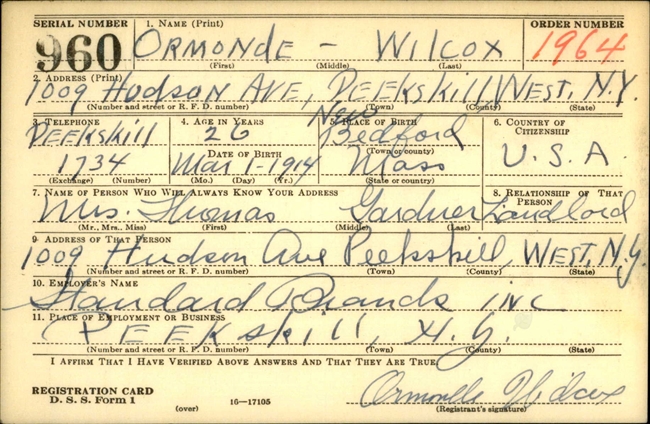 SERIAL NUMBER 1. NAME (Print) ORDER NUMBER
960 ORMONDE - WILCOX 1964
(First) (Middle) (Last)
2. ADDRESS (Print)
1009 HUDSON AVE, PEEKSKILL, WEST, N.Y.
(Number and street or R. F. D. number) (Town) (County) (State)
3. TELEPHONE 4. AGE IN YEARS 5. PLACE OF BIRTH 6. COUNTRY OF CITIZENSHIP
PEEKSKILL 26 New Bedford U.S.A.
DATE OF BIRTH (Town or county)
1734 Mar 1-1914 Mass
(Exchange) (Number) (Mo.) (Day) (Yr.) (State or country)
7. NAME OF PERSON WHO WILL ALWAYS KNOW YOUR ADDRESS 8. RELATIONSHIP OF THAT PERSON
Mrs. Thomas Gardner Landlord
(Mr., Mrs., Miss) (First) (Middle) (Last)
9. ADDRESS OF THAT PERSON
1009 Hudson Ave Peekskill, WEST, N.Y.
(Number and street or R. F. D. number) (Town) (County) (State)
10. EMPLOYER'S NAME
Standard Brands INC
11. PLACE OF EMPLOYMENT OR BUSINESS
PEEKSKILL, N.Y.
(Number and street or R. F. D. number) (Town) (County) (State)
I AFFIRM THAT I HAVE VERIFIED ABOVE ANSWERS AND THAT THEY ARE TRUE.
REGISTRATION CARD
D. S. S. Form 1 (over) 16-17105 Ormonde Wilcox
(Registrant's signature)